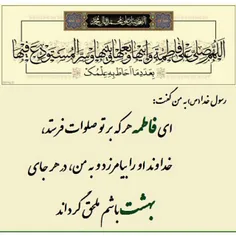 اللهم صل علی فاطمة و ابیها و بعلها و بنیها و السر المستودع فیها
بعدد ما احاط به علمک
رسول خدا(ص) به من گفت:
ای فاطمه هر که بر تو صلوات فرستد،
خداوند او را بیامرزد و به من، در هر جای
بهشت باشم ملحق گرداند